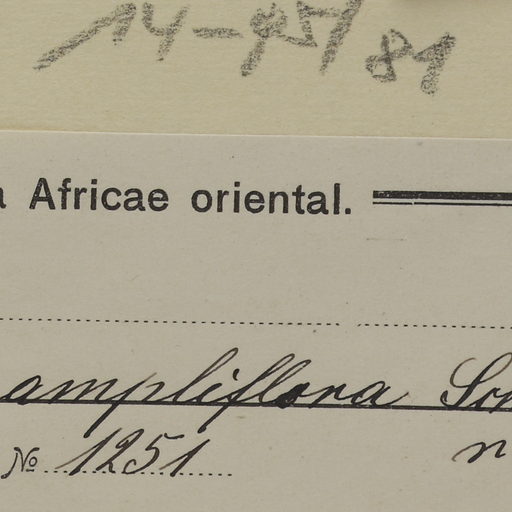 14-95/81
a Africae oriental.
ampliflora
№ 1251 n